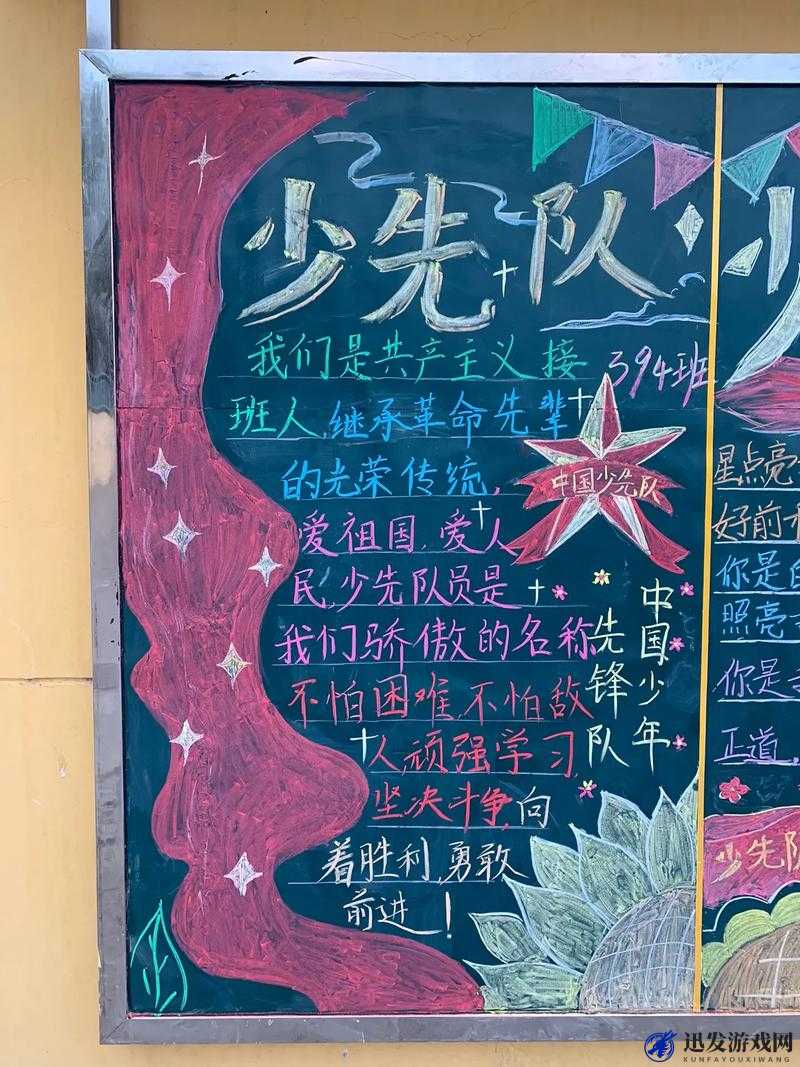 少先队
394班
我们是共产主义接
班人,继承革命先辈
的光荣传统,
爱祖国,爱人
民,少先队员是
我们骄傲的名称
不怕困难,不怕敌
人,顽强学习
坚决斗争,向
着胜利,勇敢
前进!
中国少先队
中国少年
先锋队
星点亮
好前
你是
照亮
你是
正道,
少先队
迅发游戏网
XUNFAYOUXIWANG